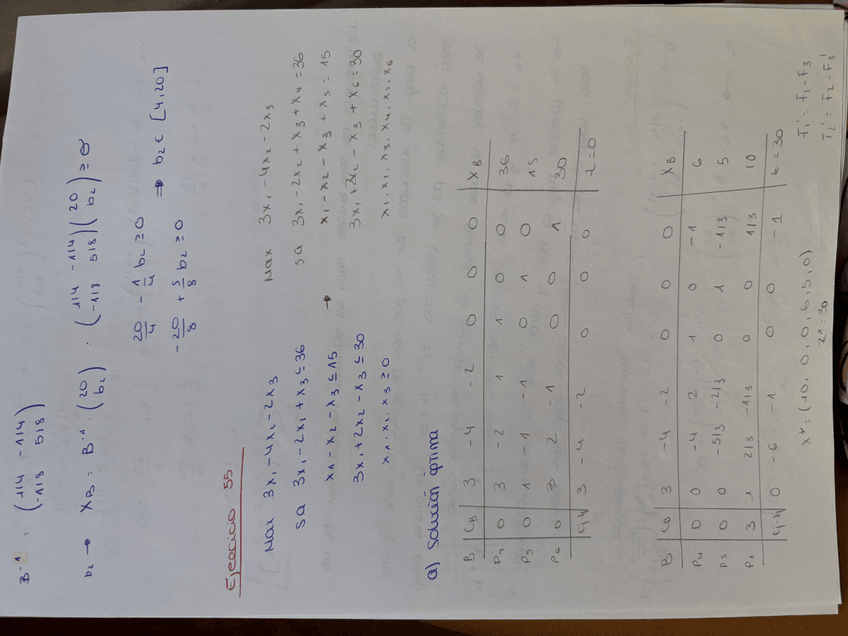 B⁻¹ = (1/4 -1/4
-1/8 5/8)
b₂ → X_B = B⁻¹ · (20 b₂) = (1/4 -1/4 -1/8 5/8) (20 b₂) ≥ 0
20/4 - 1/4 b₂ ≥ 0
⇒ b₂ ∈ [4,20]
-20/8 + 5/8 b₂ ≥ 0
Ejercicio 55
Max 3x₁ - 4x₂ - 2x₃
sa 3x₁ - 2x₂ + x₃ ≤ 36
x₁ - x₂ - x₃ ≤ 15
3x₁ + 2x₂ - x₃ ≤ 30
x₁, x₂, x₃ ≥ 0
→
Max 3x₁ - 4x₂ - 2x₃
sa 3x₁ - 2x₂ + x₃ + x₄ = 36
x₁ - x₂ - x₃ + x₅ = 15
3x₁ + 2x₂ - x₃ + x₆ = 30
x₁, x₂, x₃, x₄, x₅, x₆
a) Solución óptima
B C_B 3 -4 -2 0 0 0 X_B
P₄ 0 3 -2 1 1 0 0 36
P₅ 0 1 -1 -1 0 1 0 15
P₆ 0 3 2 -1 0 0 1 30
3 -4 -2 0 0 0 z=0
B C_B 3 -4 -2 0 0 0 X_B
P₄ 0 0 -4 2 1 0 -1 6
P₅ 0 0 -5/3 -2/3 0 1 -1/3 5
P₁ 3 1 2/3 -1/3 0 0 1/3 10
0 -6 -1 0 0 -1 z=30
x* = (10, 0, 0, 6, 5, 0)
z* = 30
F₁' = F₁ - F₃
F₂' = F₂ - F₃'